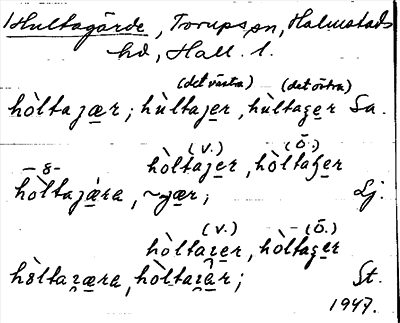 Hultagärde, Torups sn, Halmstads
hd, Hall. l.
(det västra) (det östra)
hòltajær; hùltajer, hùltaʒer Sa.
(V.) (Ö.)
hòltajer, hòltaʒer
hòltajæra, ~jær; Lj.
(V.) (Ö.)
hòltaʒer, hòltaʒer
hòltaʒæra, hòltaʒær; St.
1947.